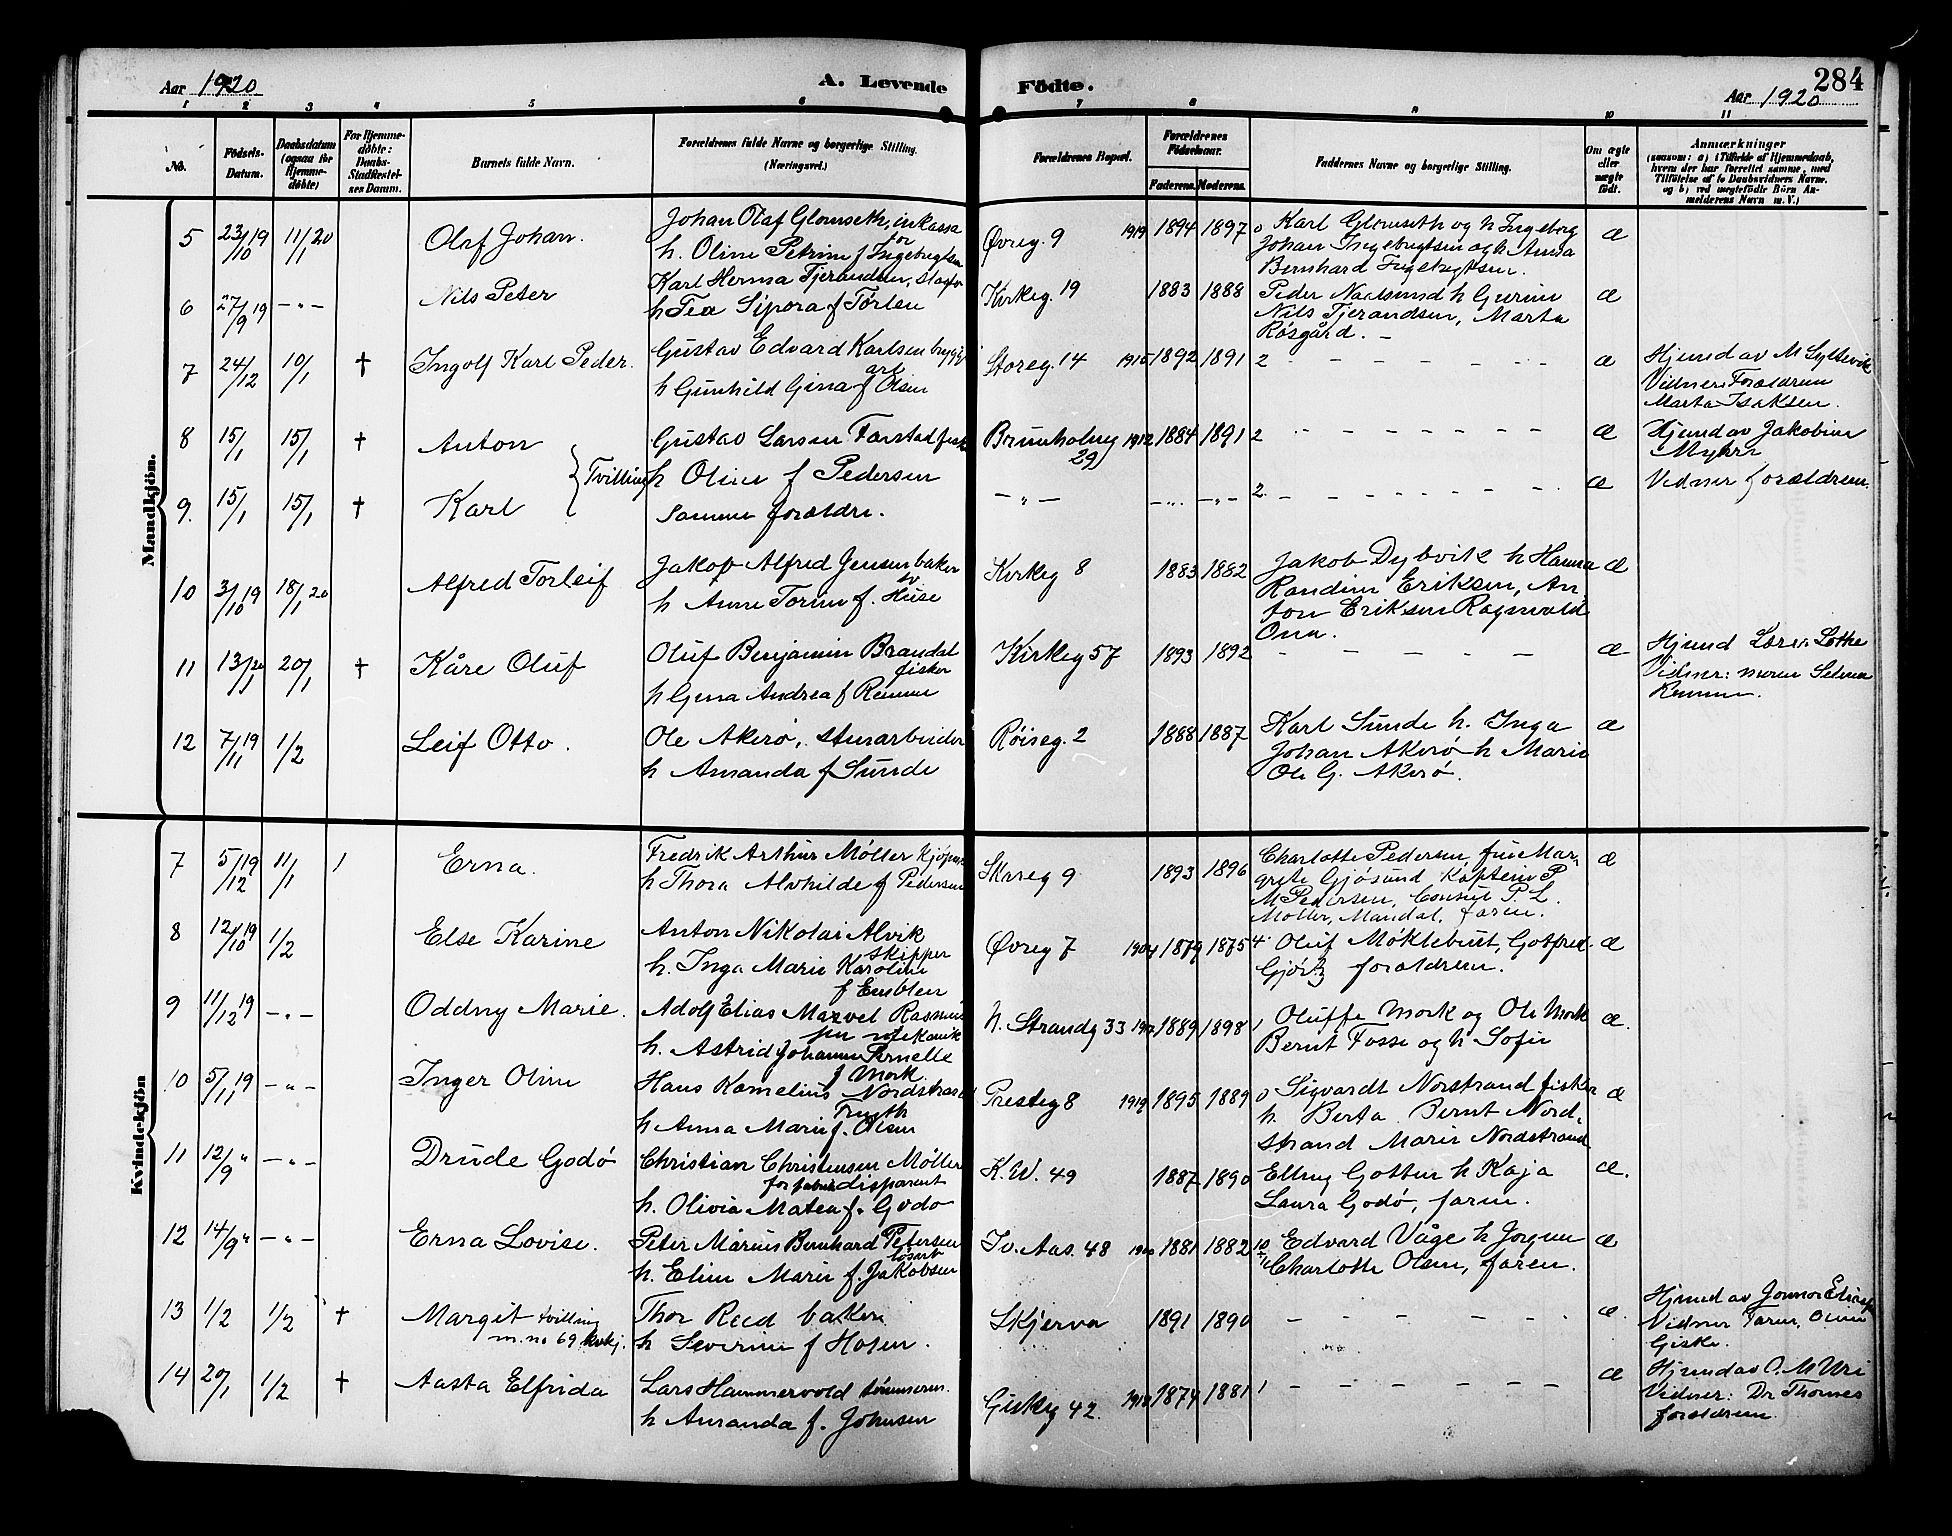 Aar 1920
A. Levende Födte.
284
Aar 1920
1 2 3 4 5 6 7 8 9 10 11
No.
Födsels-Datum.
Daabsdatum (ogsaa for Hjemme-döbte)
For Hjemme-döbte: Daabs-Stadfæstel-ses Datum.
Barnets fulde Navn.
Forældrenes fulde Navne og borgerlige Stilling. (Næringsvei.)
Forældrenes Bopæl.
Forældrenes Födselsaar.
Faderens. Moderens.
Faddernes Navne og borgerlige Stilling.
Om ægte eller uægte født.
Anmærkninger
(saasom: a) i Tilfælde af Hjemmedaab, hvem der har forrettet samme, med Tilföielse af to Daabsvidners Navne, og b) ved uægtefödte Börn An-melderens Navn m. V.)
Mandkjön.
5 23/10 19 11/1 20 Olaf Johan.
Johan Olaf Glomseth, inkassa
h. Oline Petrine f Ingebrigtsen
Øvreg. 9 1919 1894 1897 0
Karl Glomseth og h Ingeborg
Johan Ingebrigtsen og h Anna
Bernhard Ingebrigtsen.
æ
6 27/9 19 -"- Nils Peter
Karl Herma Tjerandsen,
h Tea Sipora f Torlen
Kirkeg. 19 1883 1888
Peder h Gurine
Nils Tjerandsen, Marta
Rösgård. -
æ
7 24/12 10/1 † Ingolf Karl Peder.
Gustav Edvard Karlsen bryg
arb
h Gunhild Gina f Olsen
Storeg. 14 1892 1891 2
æ
Hjemd av M Syltevik
Vidner: Forældrene
Marta Isaksen.
8 15/1 15/1 † Anton
Gustav Larsen Farstad fisk
h Oline f Pedersen
Tvilling
Brunholmg 29 1912 1884 1891 2
æ
Hjemd av Jakobine
Myhre
9. 15/1 15/1 † Karl
samme forældre.
-"- -"- -"- 2.
æ
Vidner forældrene.
10 3/10 19 18/1 20 Alfred Torleif
Jakop Alfred Jensen baker
h Anne Torine f. Huse
Kirkeg 8 1883 1882
Jakob Dybvik h Hanna
Randine Eriksen, An
ton Eriksen Ragnvald
Ona.
æ
11 13/1 20 20/1 † Kåre Oluf
Oluf Benjamin Brandal
fisker
h Gina Andrea f Remme
Kirkeg 57 1893 1892
æ
Hjemd Lothe
Vidner: moren Selma
Remme.
12 7/11 19 1/2 Leif Otto.
Ole Akerø, stuearbeider
h Amanda f Sunde
Röiseg. 2 1888 1887
Karl Sunde h. Inga
Johan Akerø h Marie
Ole G. Akerö.
æ
Kvindekjön
7 5/12 19 11/1 1 Erna.
Fredrik Arthur Møller Kjøpm
h Thora Alvhilde f Pedersen
Skareg 9 1893 1896
Charlotte Pedersen, frue Mar-
grete Gjøsund Kaptein P
M Pedersen, Consul P. L.
Møller, Mandal, faren.
æ
8 12/10 19 1/2 Else Karine
Anton Nikolai Alvik
skipper
h. Inga Marie Karoline
f Emblem
Øvreg 7 1904 1879 1875 4
Oluf Møklebust, Gotfred
Gjørtz forældrene.
æ
9 11/12 19 -"- Oddny Marie.
Adolf Elias Marvel Rasmus
sen mekanik
h. Astrid Johanne Pernelle
f Mork.
N. Strandg 33 1889 1898 1
Oluffe Mork og Ole Mork
Bernt Fosse og h Sofie
æ.
10 5/11 19 -"- Inger Oline
Hans Kornelius Nordstrand
h Anna Marie f. Olsen
Presteg 8 1919 1895 1889 0
Sigvardt Norstrand fisker
h. Berta. Bernt Nord-
strand Marie Nordstrand
æ
11 12/9 " -"- Drude Godø
Christian Christensen Møller
disponent
h. Olivia Matea f. Godø
K.W. 49 1887 1890
Elling Gotten h Kaja
Laura Godø, faren.
æ.
12 14/9 " -"- Erna Lovise.
Peter Marius Bernhard Petersen
løsarb
h. Eline Marie f. Jakobsen
Iv. Aas. 48 1881 1882
Edvard Våge h Jorgine
Charlotte Olsen, faren.
æ
13 1/2 1/2 † Margit tvilling
m. no 69
Thor Reed baker
h Severine f Holen.
Skjerva 1891 1890
æ.
Hjemd av
Vidner Faren, Oline
Giske.
14 20/1 1/2 † Aasta Elfrida
Lars Hammervold tømmerm.
h Amanda f. Johnsen
Giskeg 42. 1910 1874 1881 1
æ
Hjemd av O. M Uri
Vidner: Dr Thomes
forældrene.